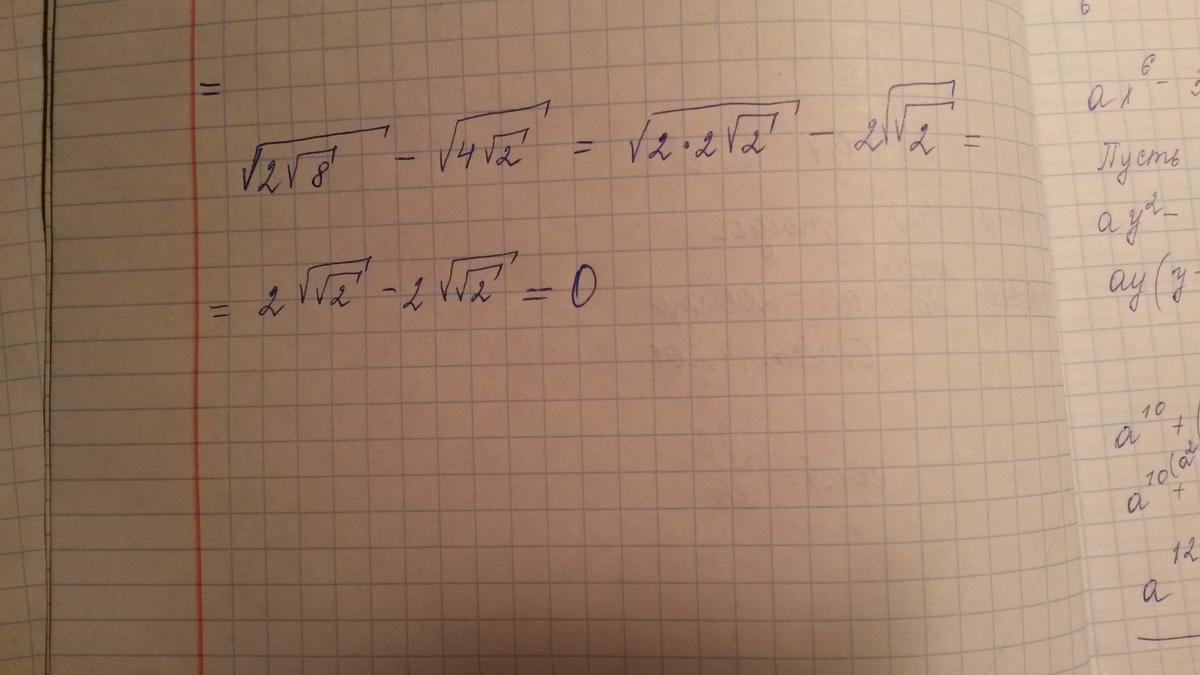 =
√(2√8) - √(4√2) = √(2·2√2) - 2√(√2) =
= 2√(√2) - 2√(√2) = 0
6
ax⁶ -
Пусть
ay² -
ay(y -
a¹⁰ + (
a¹⁰⁽ᵃ² +
a¹²